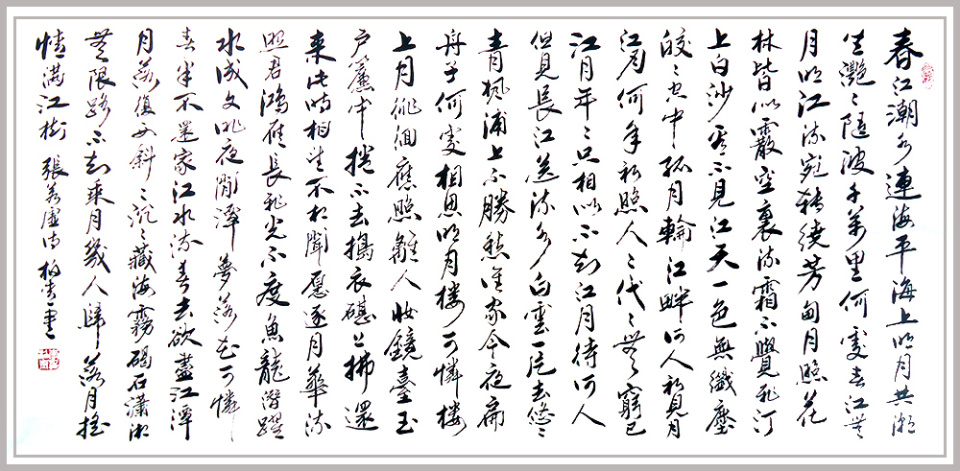 春江潮水連海平海上明月共潮
生灩〻隨波千萬里何處春江無
月明江流宛轉繞芳甸月照花
林皆似霰空裏流霜不覺飛汀
上白沙看不見江天一色無纖塵
皎〻空中孤月輪江畔何人初見月
江月何年初照人〻代〻無窮已
江月年〻只相似不知江月待何人
但見長江送流水白雲一片去悠〻
青楓浦上不勝愁誰家今夜扁
舟子何處相思明月樓可憐樓
上月徘徊應照離人妝鏡臺玉
戶簾中捲不去擣衣碪上拂還
來此時相望不相聞願逐月華流
照君鴻雁長飛光不度魚龍潛躍
水成文昨夜閒潭夢落花可憐
春半不還家江水流春去欲盡江潭
月落復西斜〻沉〻藏海霧碣石瀟湘
無限路不知乘月幾人歸落月搖
情滿江樹 張若虛詩 書